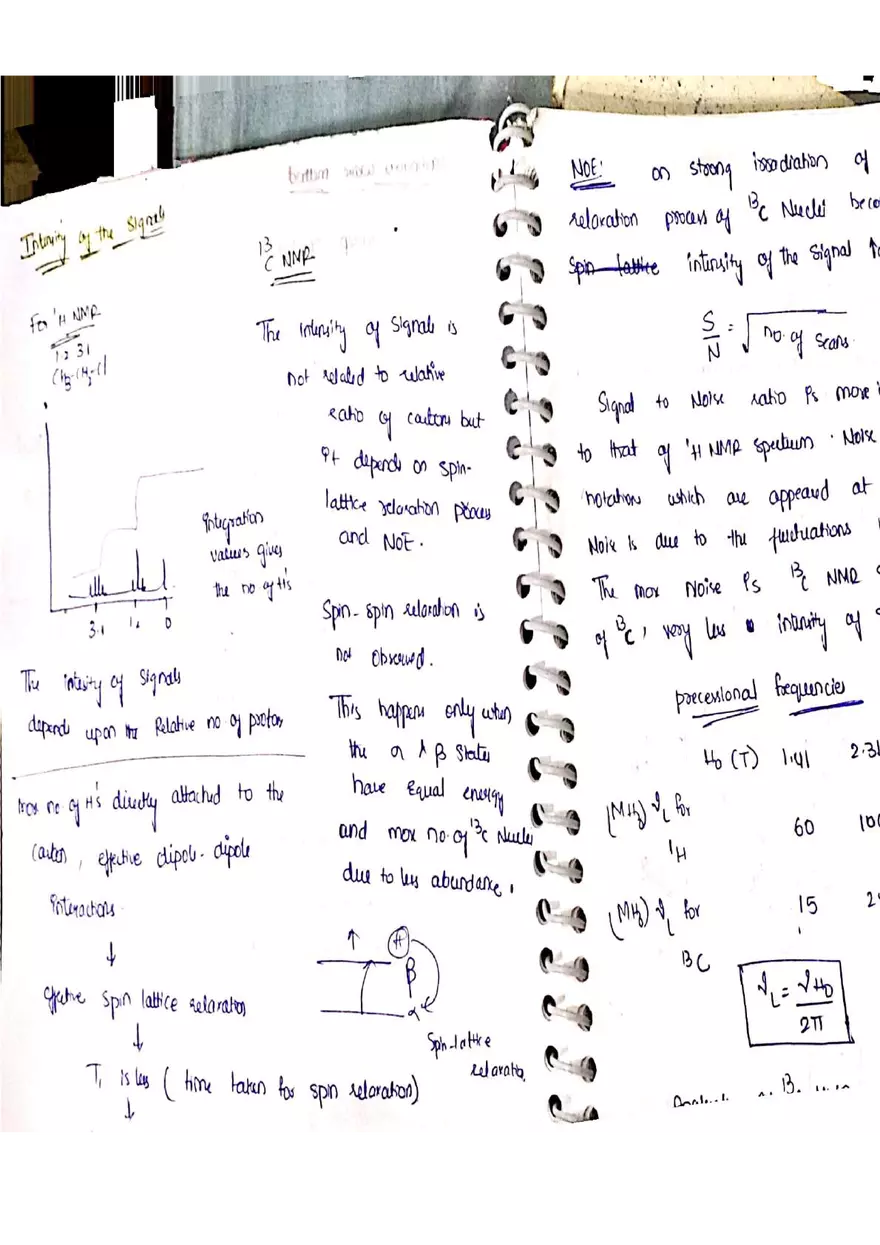 Intensity of the Signals
For ¹H NMR
1.2 3.1
CH₃-CH₂-Cl
Integration
values gives
the no of H's
3.1 1.2 0
The intesity of Signals
depends upon the Relative no of protons
max no. of H's directly attached to the
Carbon, effective dipole-dipole
interactions.
↓
effective spin lattice relaxation
↓
T₁ is less ( time taken for spin relaxation)
↓
¹³C NMR
The intensity of Signals is
not related to relative
ratio of carbons but
it depends on spin-
lattice relaxation process
and NOE.
Spin-spin relaxation is
not Observed.
This happens only when
the α & β States
have equal energy
and max no. of ¹³C Nuclei
due to less abundance.
↑ H
β
α
Spin-lattice
relaxation
NOE: on strong irradiation of
relaxation process of ¹³C Nuclei
Spin-lattice intensity of the signal ↑
S/N = √no. of scans.
Signal to Noise ratio is more
to that of ¹H NMR spectrum. Noise
notations which are appeared at
Noise is due to the fluctuations
The max Noise is ¹³C NMR
of ¹³C, very less intensity of
precessional frequencies
H₀ (T) 1.41 2.3
(MHz) ν_L for 60 10
¹H
(MHz) ν_L for 15 2
¹³C
ν_L = γH₀/2π